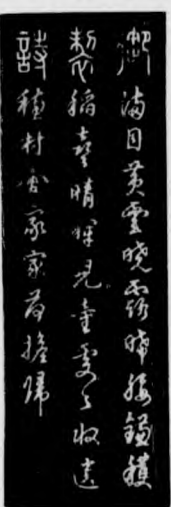 御製詩
滿目黃雲曉露晞腰鐮穫
稻喜晴暉兒童處〻收遺
穗村舍家家荷擔歸